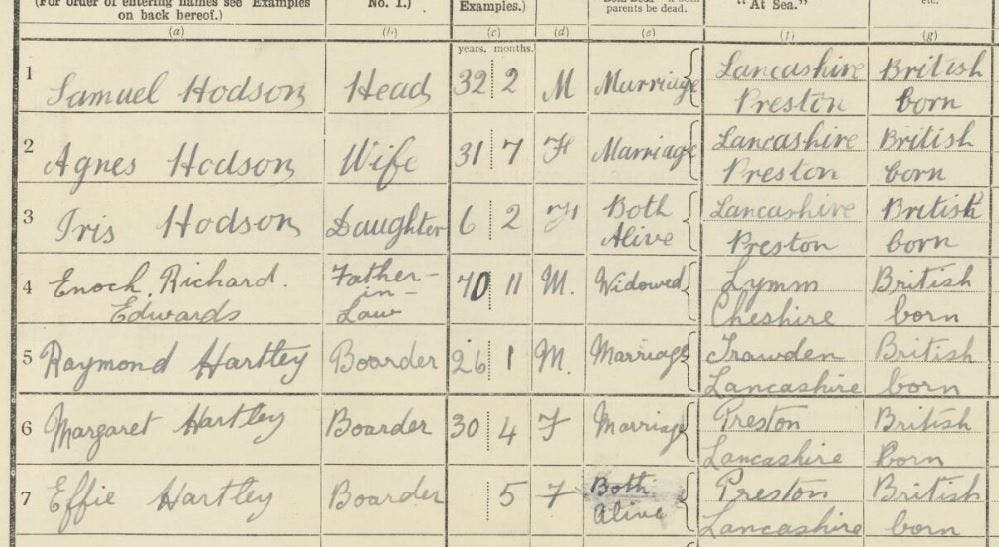 (For order of entering names see Examples
on back hereof.)
No. 1.)
Examples.)
parents be dead.
"At Sea."
etc.
(a) (b) (c) (d) (e) (f) (g)
years. months.
1 Samuel Hodson Head 32 2 M Marriage Lancashire British
Preston born
2 Agnes Hodson Wife 31 7 F Marriage Lancashire British
Preston born
3 Iris Hodson Daughter 6 2 F Both Lancashire British
Alive Preston born
4 Enoch Richard. Father- 70 11 M. Widowed Lymm British
in-
Edwards Law Cheshire born
5 Raymond Hartley Boarder 26 1 M. Marriage Trawden British
Lancashire born
6 Margaret Hartley Boarder 30 4 F Marriage Preston British
Lancashire Born
7 Effie Hartley Boarder 5 F Both Preston British
alive Lancashire born